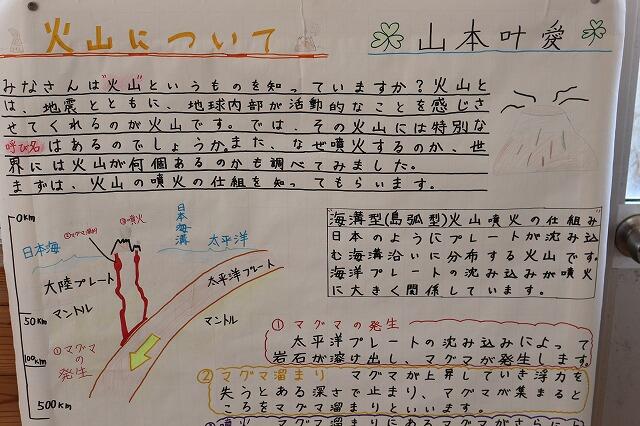 火山について
山本叶愛
みなさんは"火山"というものを知っていますか？火山と
は、地震とともに、地球内部が活動的なことを感じさ
せてくれるのが火山です。では、その火山には特別な
呼び名はあるのでしょうか。また、なぜ噴火するのか、世
界には火山が何個あるのかも調べてみました。
まずは、火山の噴火の仕組を知ってもらいます。
0km
50km
100km
500km
日本海
③噴火
日本海溝
太平洋
大陸プレート
太平洋プレート
マントル
マントル
①マグマの発生
海溝型(島弧型)火山噴火の仕組み
日本のようにプレートが沈み込
む海溝沿いに分布する火山です。
海洋プレートの沈み込みが噴火
に大きく関係しています。
①マグマの発生
太平洋プレートの沈み込みによって
岩石が溶け出し、マグマが発生します。
②マグマ溜まり マグマが上昇していき浮力を
失うとある深さで止まり、マグマが集まると
ころをマグマ溜まりといいます。